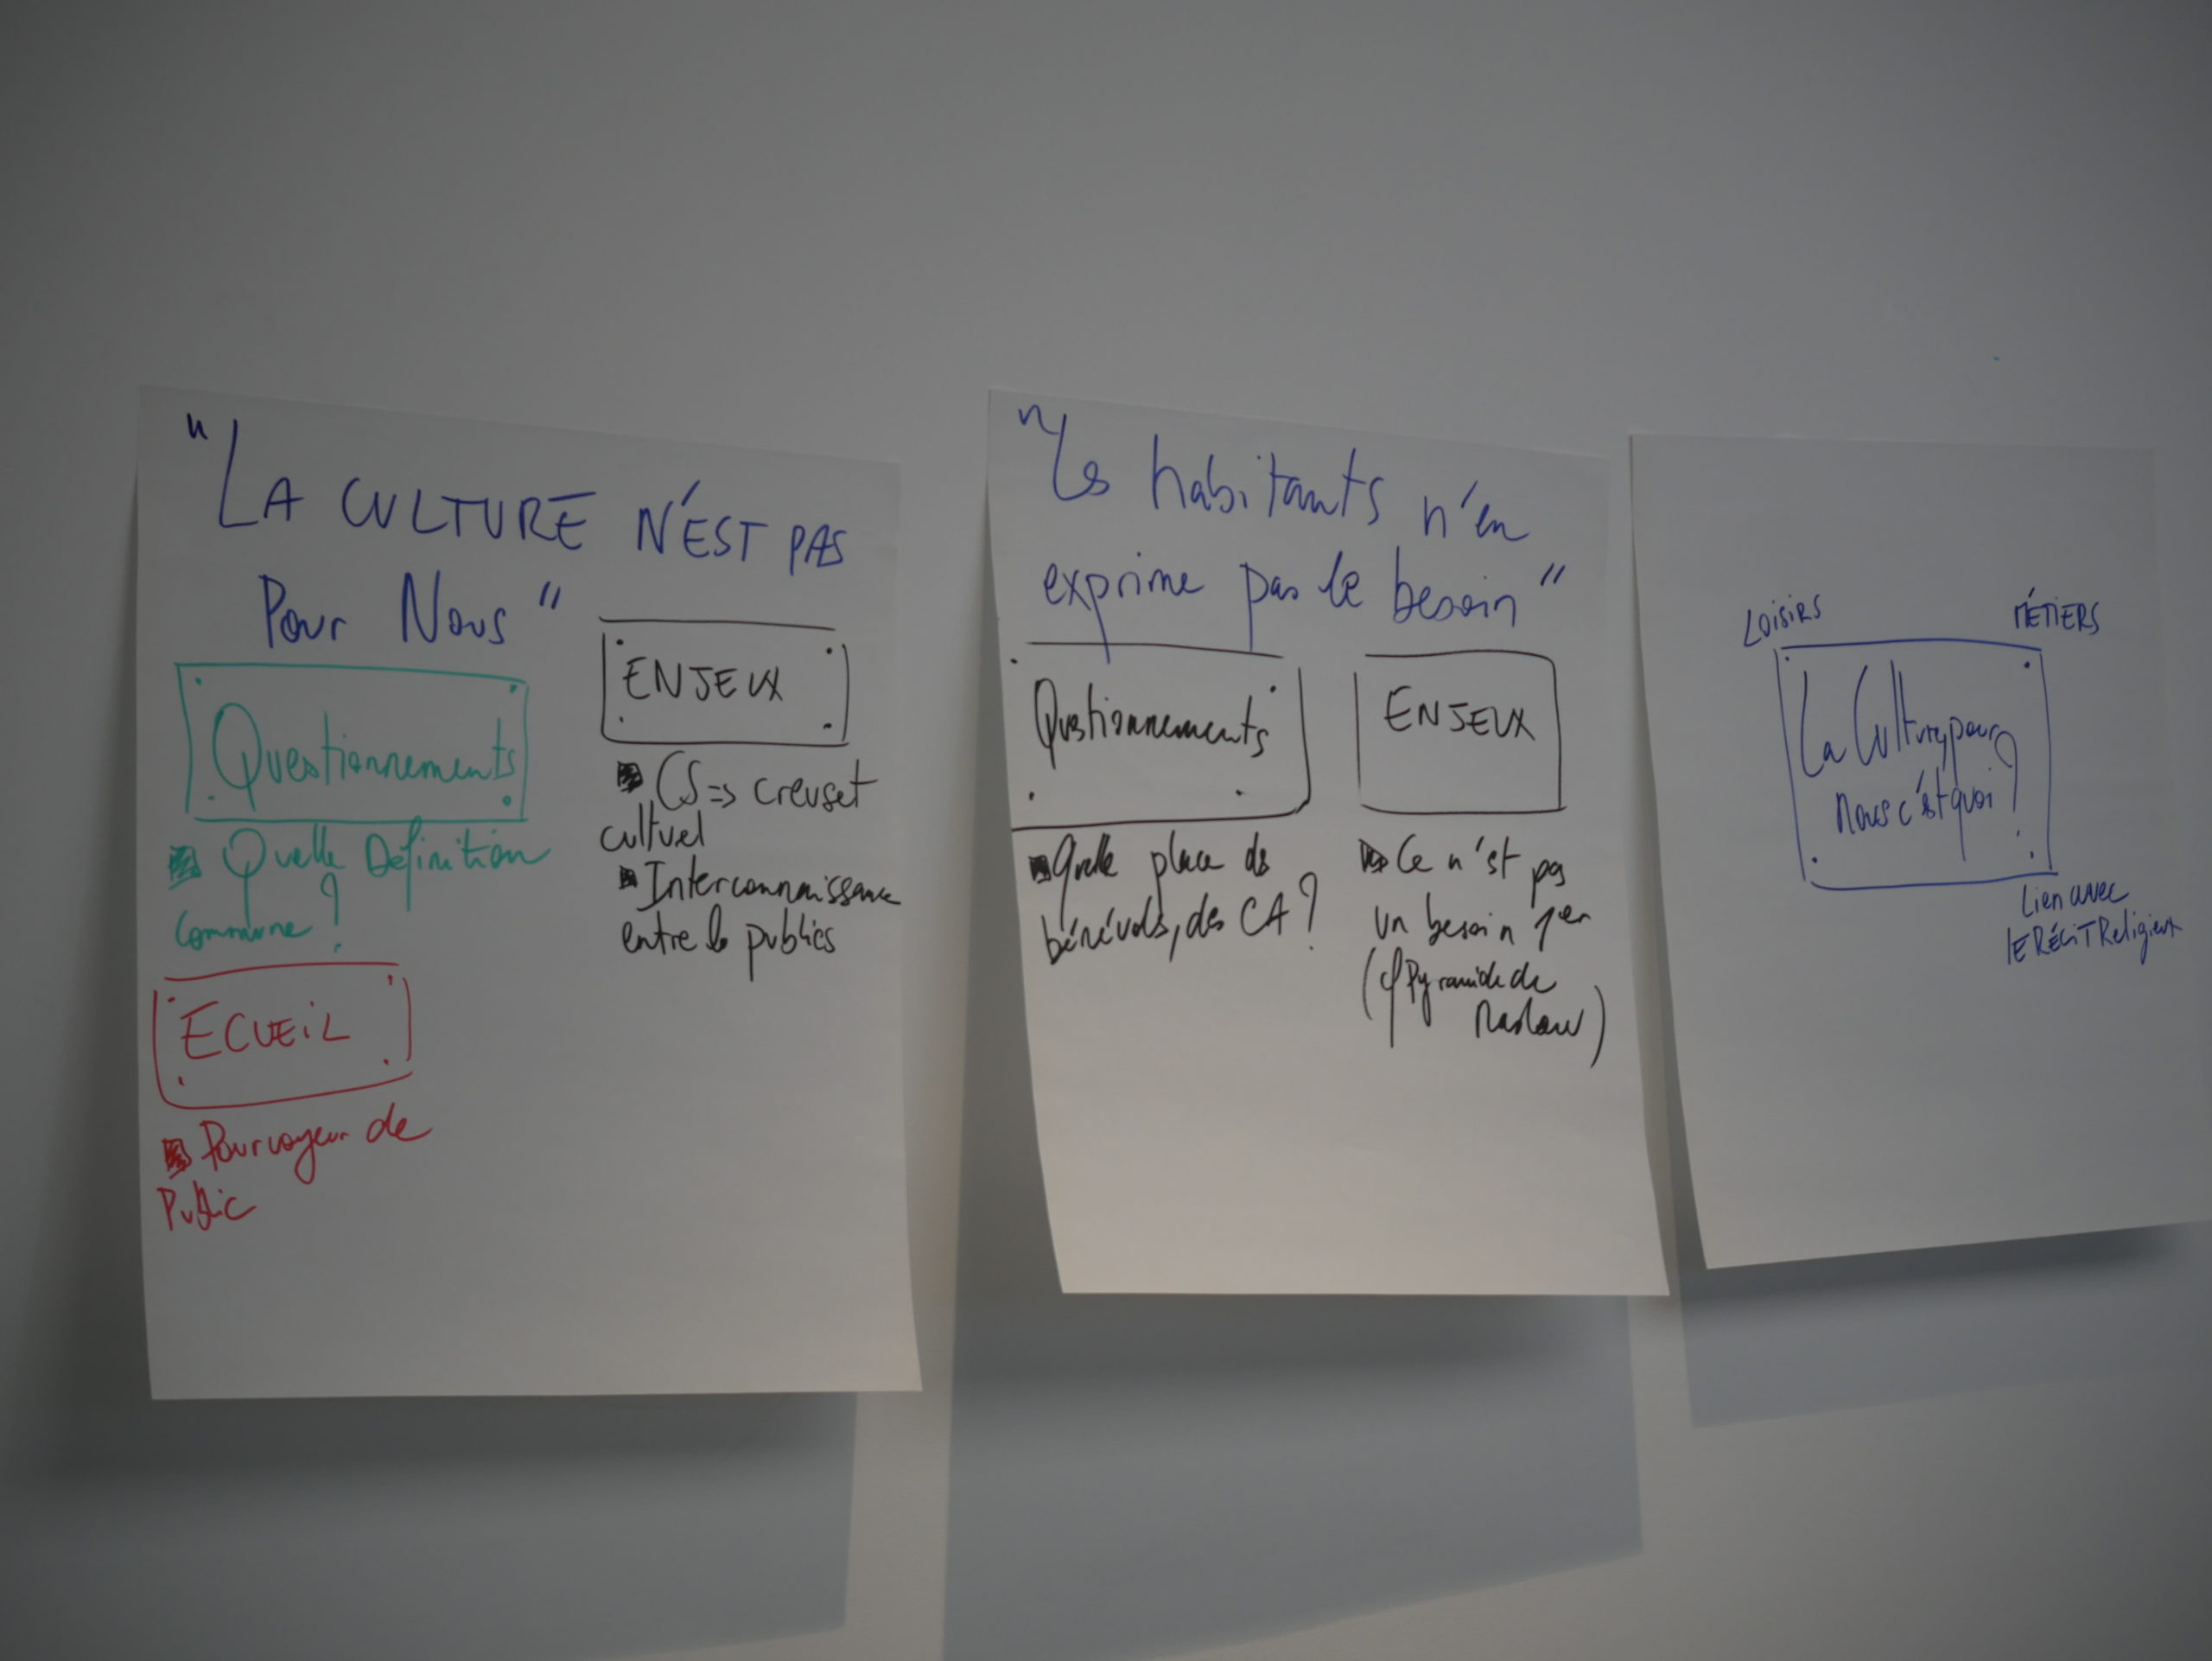 "LA CULTURE N'EST PAS
Pour Nous"
Questionnements
Quelle Définition
Commune ?
ECUEIL
Pourvoyeur de
Public
ENJEUX
CS => creuset
cultuel
Interconnaissance
entre les publics
"Les habitants n'en
exprime pas le besoin"
Questionnements
Quelle place des
bénévols, des CA ?
ENJEUX
Ce n'est pas
un besoin 1er
(cf Pyramide de
Maslow)
LOISIRS
MÉTIERS
La Culture pour
Nous c'est quoi ?
Lien avec
lE RÉCIT Religieux